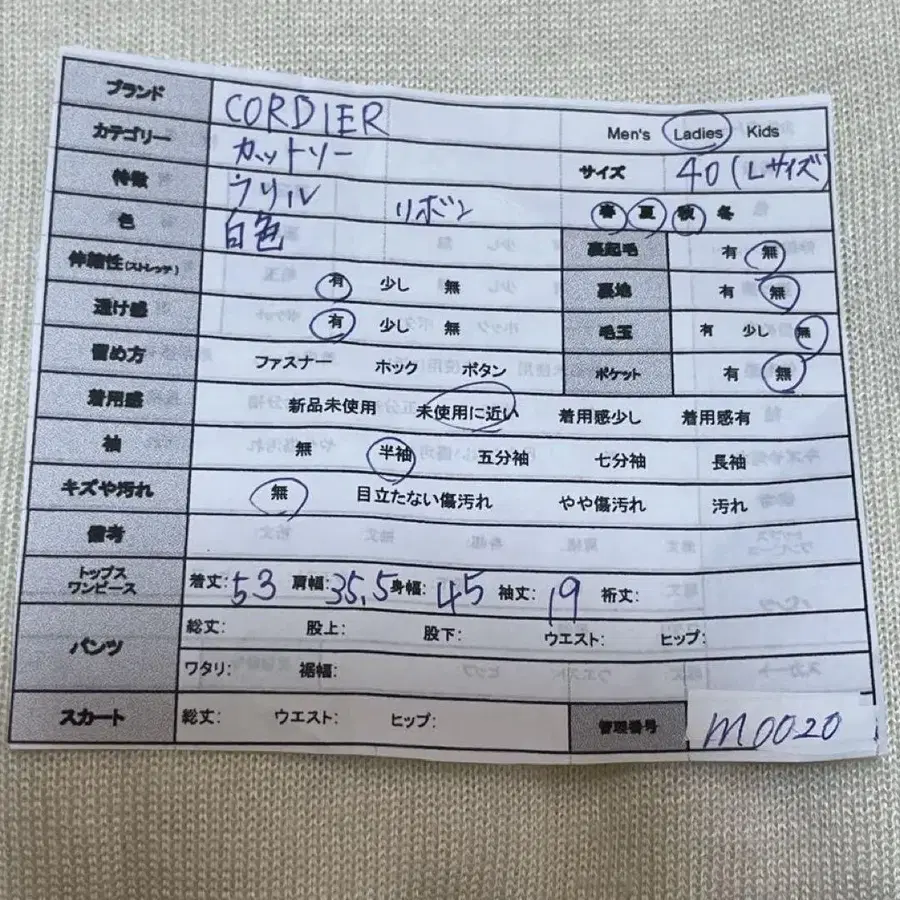 ブランド CORDIER Men's Ladies Kids
カテゴリー カットソー サイズ 40(Lサイズ)
特徴 フリル リボン 春 夏 秋 冬
色 白色 裏起毛 有 無
伸縮性(ストレッチ) 有 少し 無 裏地 有 無
透け感 有 少し 無 毛玉 有 少し 無
留め方 ファスナー ホック ボタン ポケット 有 無
着用感 新品未使用 未使用に近い 着用感少し 着用感有
袖 無 半袖 五分袖 七分袖 長袖
キズや汚れ 無 目立たない傷汚れ やや傷汚れ 汚れ
備考
トップス
ワンピース 着丈:53 肩幅:35.5 身幅:45 袖丈:19 裄丈:
パンツ 総丈: 股上: 股下: ウエスト: ヒップ:
ワタリ: 裾幅:
スカート 総丈: ウエスト: ヒップ: 管理番号 m0020